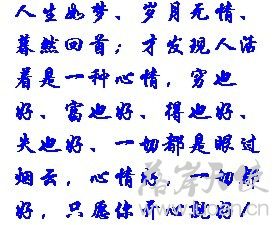 人生如梦、岁月无情、
蓦然回首；才发现人活
着是一种心情，穷也
好、富也好、得也好、
失也好、一切都是眼过
烟云，心情好，一切都
好，只愿你开心就好！